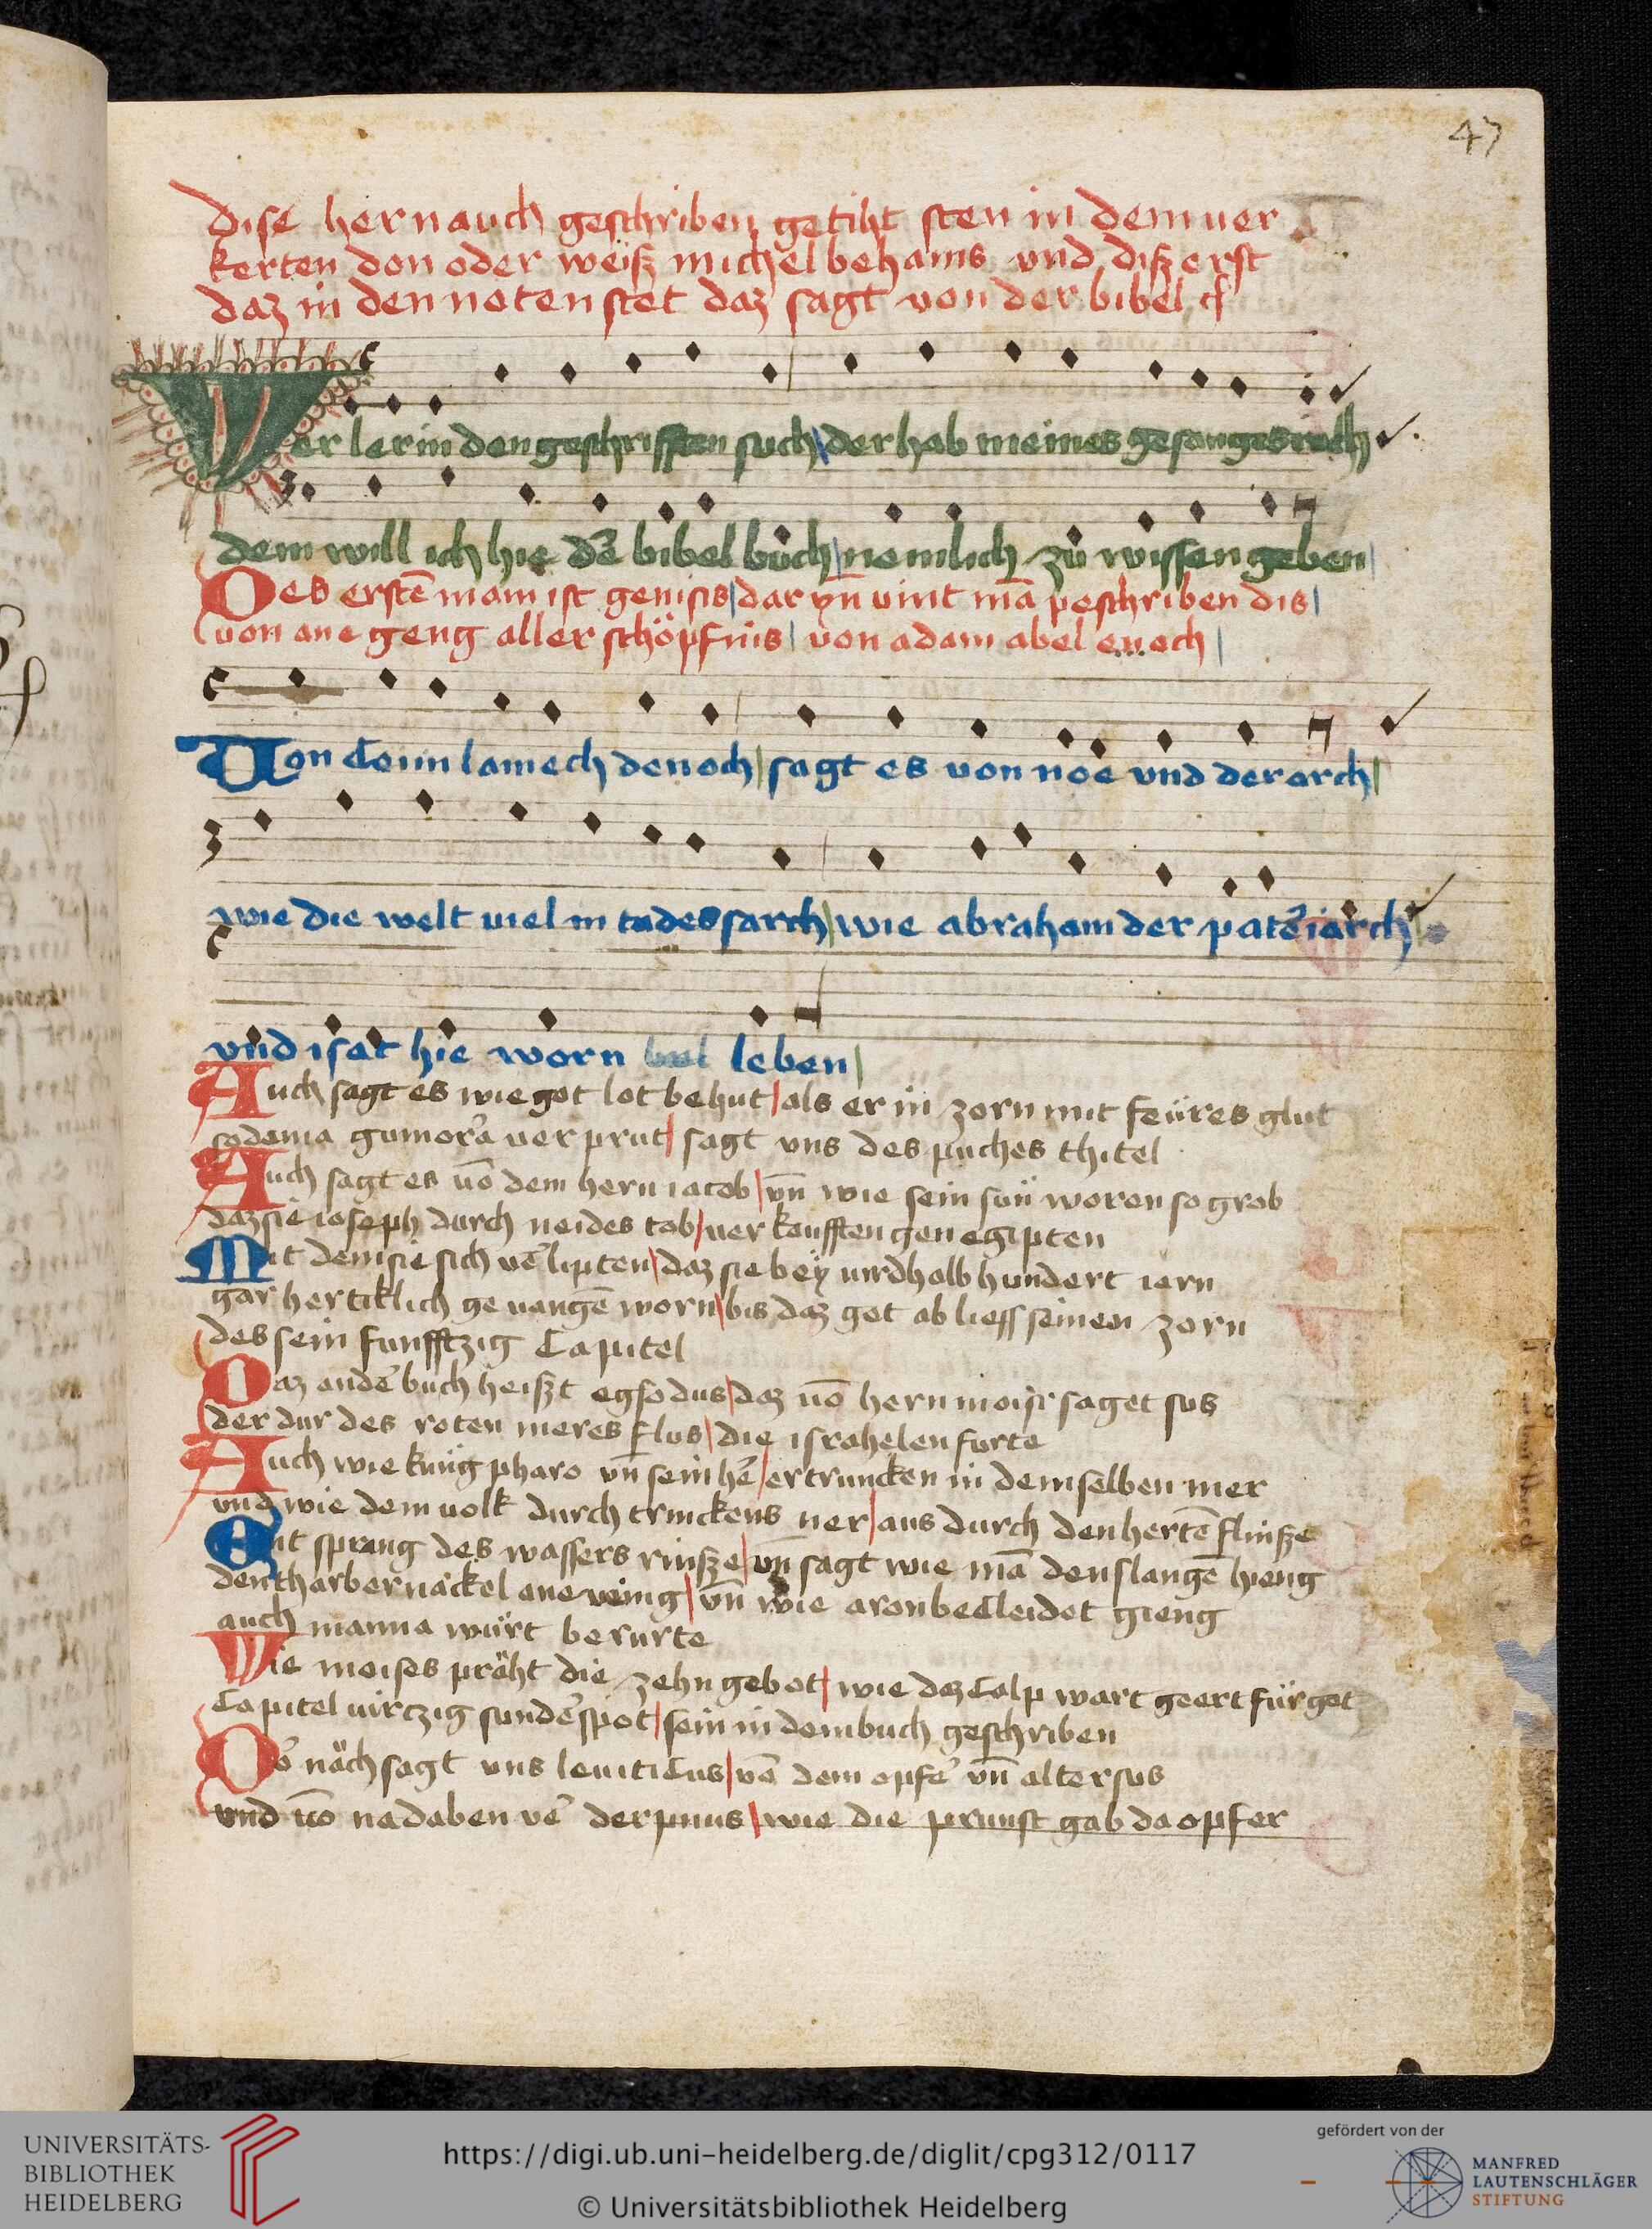 47
dise hernauch geschriben getiht sten in dem uer
kerten don oder weiß michel behams vnd diß erst
daz in den noten stet daz sagt von der bibel
Wer ler in den geschrifften such der hab meines gesanges ruch
dem will ich hie dē bibel bůch nemlich zů wissen geben
Des erstē nam ist genisis dar yn̄ vint mā peschriben dis
von ane geng aller schöpfnis von adam abel enoch
Von Cain lamech denoch sagt es von noe vnd der arch
wie die welt viel in todes sarch wie abraham der patēiarch
vnd isac hie worn leben
Auch sagt es wie got lot behut als er in zorn mit feüres glut
sodoma gumora verprut sagt vns des puches thitel
Auch sagt es vō dem hern iacob vn̄ wie sein sün woren so grob
daz sie ioseph durch neides tob ver kaufften gen egipten
Mit dem sie sich vē lipten daz sie bey virdhalb hundert iern
gar hertiklich ge vangē worn bis daz got ab liess seinen zorn
des sein funfftzig Capitel
Daz andē buch heißt egsodus daz vō hern moisi saget sus
der dur des roten meres flus die israhelen furte
Auch wie künig pharo vn̄ sein hē ertruncken in demselben mer
vnd wie dem volk durch trinckens ner aus durch den hertē flinße
Ent sprang des wassers rinße vn̄ sagt wie mā den slangē hieng
den tharbernackel ane veing vn̄ wie aron becleidet gieng
auch manna würt berurte
Wie moises präht die zehn gebot wie daz Calp wart geert für got
Capitel virczig sundē spot sein in dem buch geschriben
Dō näch sagt vns leuiticus vō dem opfē vn̄ alter sus
vnd vō nadaben vē derpnus wie die prunst gab da opfer
UNIVERSITÄTS-
BIBLIOTHEK
HEIDELBERG
https://digi.ub.uni-heidelberg.de/diglit/cpg312/0117
© Universitätsbibliothek Heidelberg
gefördert von der
MANFRED
LAUTENSCHLÄGER
STIFTUNG